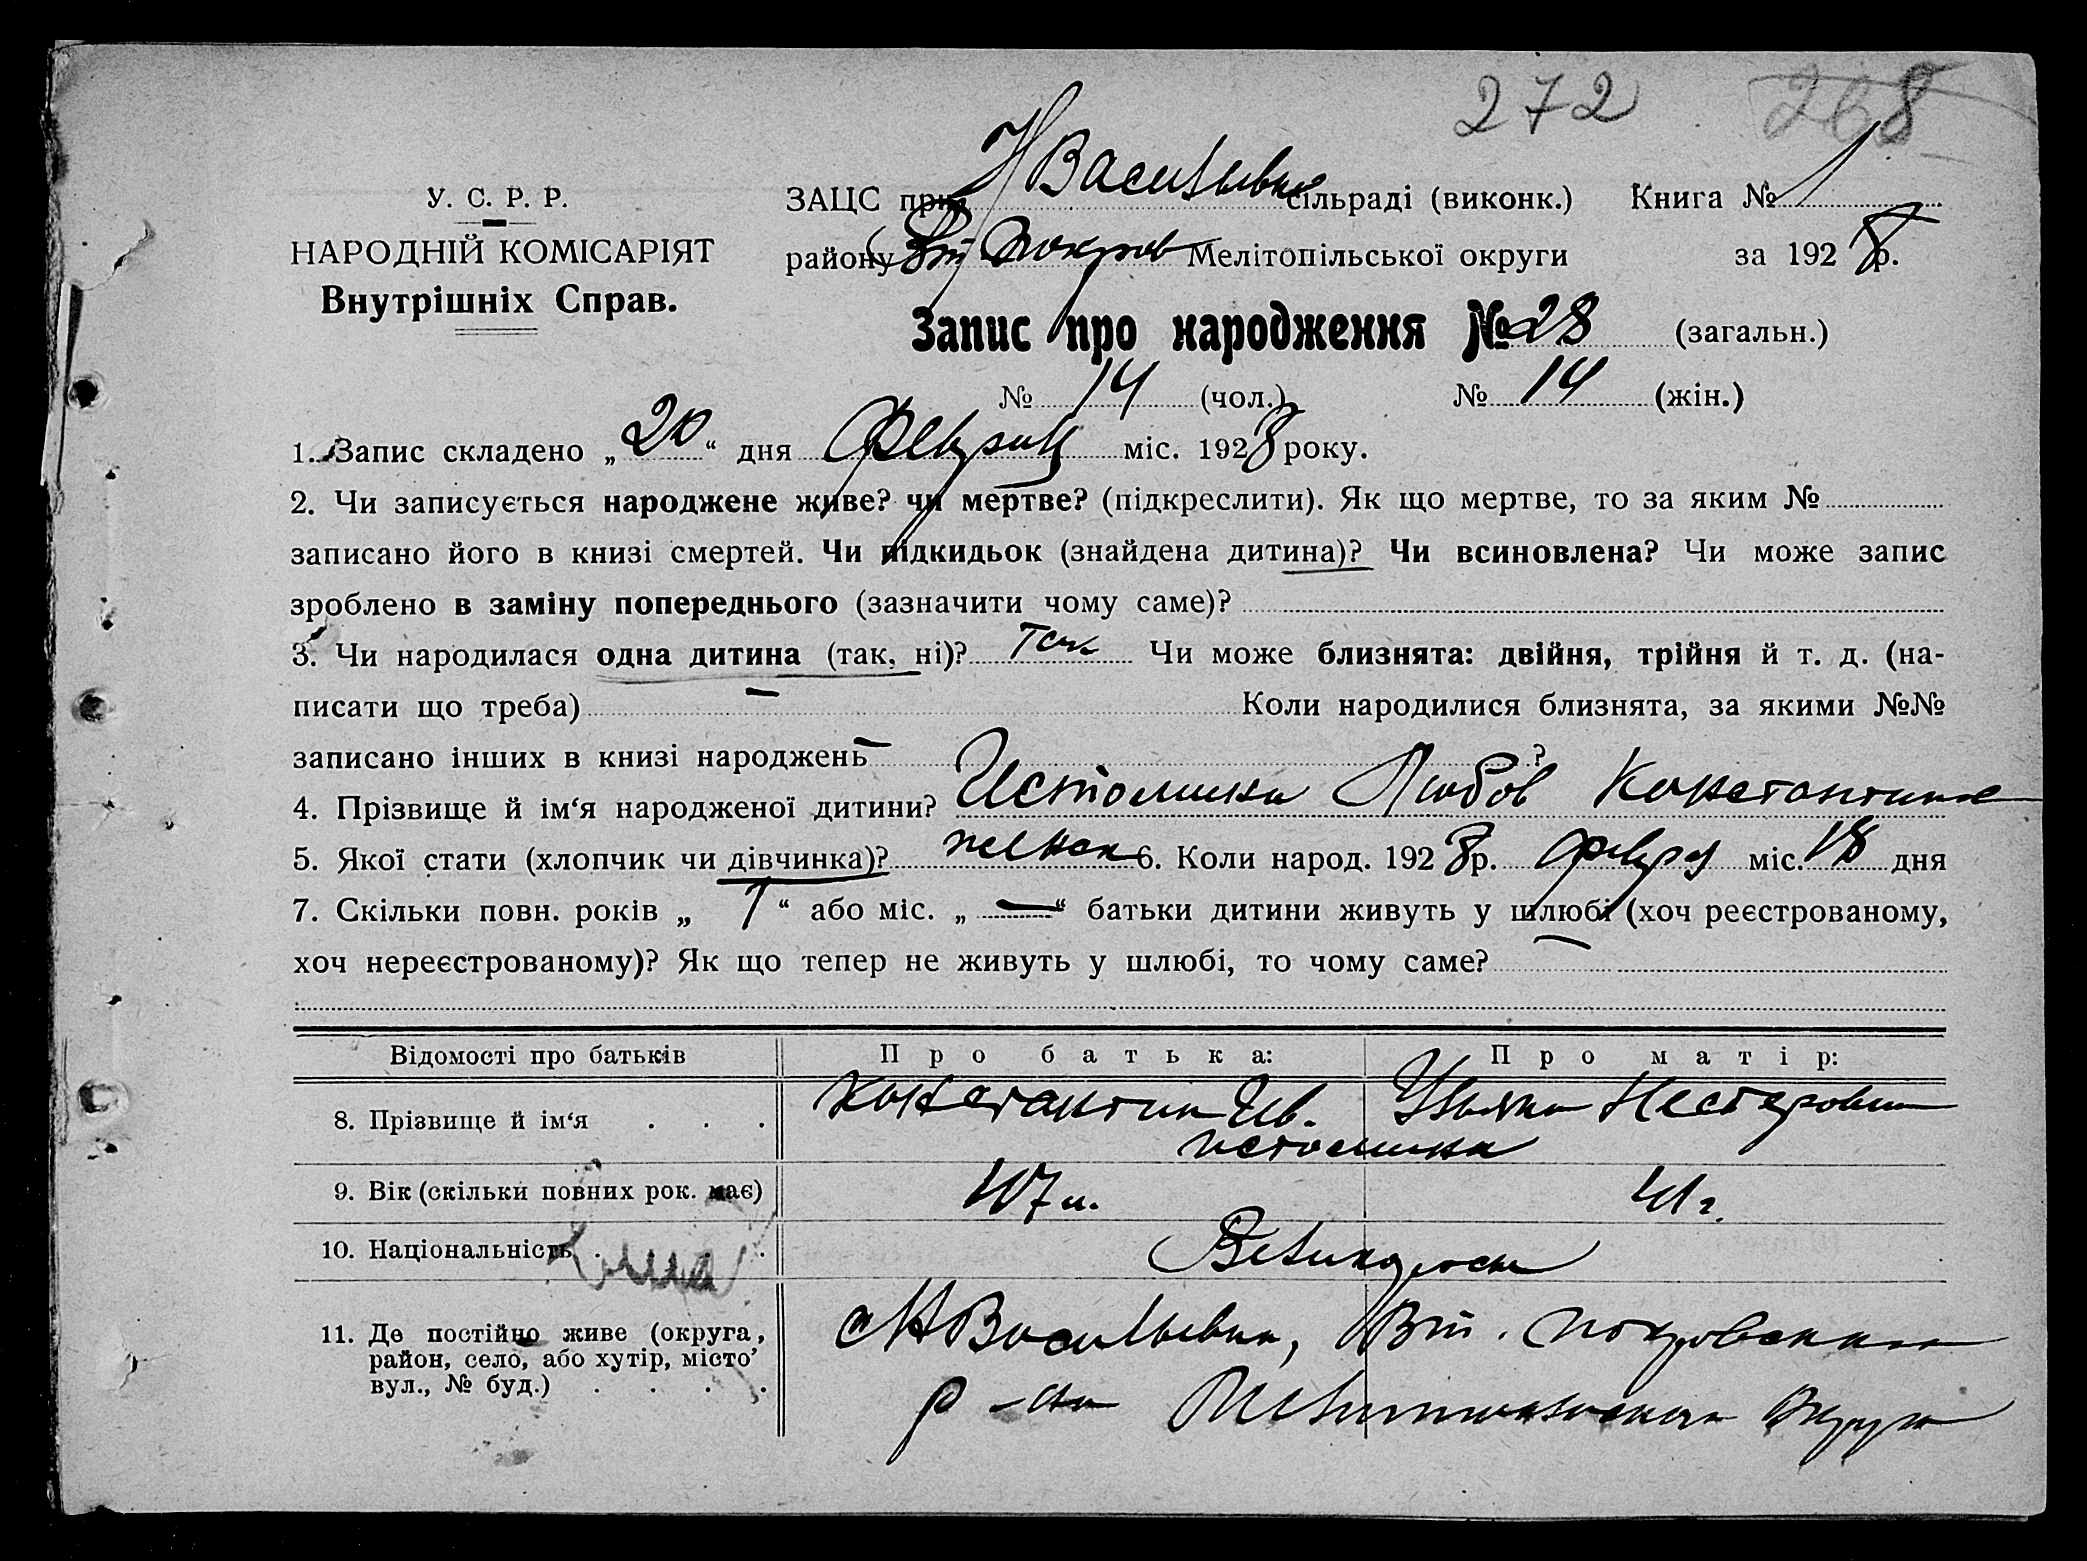 272 268
У. С. Р. Р.
НАРОДНІЙ КОМІСАРІЯТ
Внутрішніх Справ.
ЗАЦС при Н Васильевке сільраді (виконк.) Книга № 1
району Вт Покров Мелітопільської округи за 1928 р.
Запис про народження № 28 (загальн.)
№ 14 (чол.) № 14 (жін.)
1. Запис складено „20“ дня міс. 1928 року.
2. Чи записується народжене живе? чи мертве? (підкреслити). Як що мертве, то за яким №
записано його в книзі смертей. Чи підкидьок (знайдена дитина)? Чи всиновлена? Чи може запис
зроблено в заміну попереднього (зазначити чому саме)?
3. Чи народилася одна дитина (так, ні)? Так Чи може близнята: двійня, трійня й т. д. (на-
писати що треба) — Коли народилися близнята, за якими №№
записано інших в книзі народжень — ?
4. Прізвище й ім‘я народженої дитини? Истомина Любов Константин
5. Якої стати (хлопчик чи дівчинка)? женск 6. Коли народ. 1928 р. февр міс. 18 дня
7. Скільки повн. років „ “ або міс. „—“ батьки дитини живуть у шлюбі (хоч реєстрованому,
хоч нереєстрованому)? Як що тепер не живуть у шлюбі, то чому саме? —
Відомості про батьків Про батька: Про матір:
8. Прізвище й ім‘я . . . Константин Ив. Ульяна Нестеровна
Истомина
9. Вік (скільки повних рок. має) 41 г.
10. Національність . . Великоросы
11. Де постійно живе (округа,
район, село, або хутір, місто,
вул., № буд.) . . . .
с Н Васильевка, Вт. Покровскаго
р-на Мелитопольскаго Округа